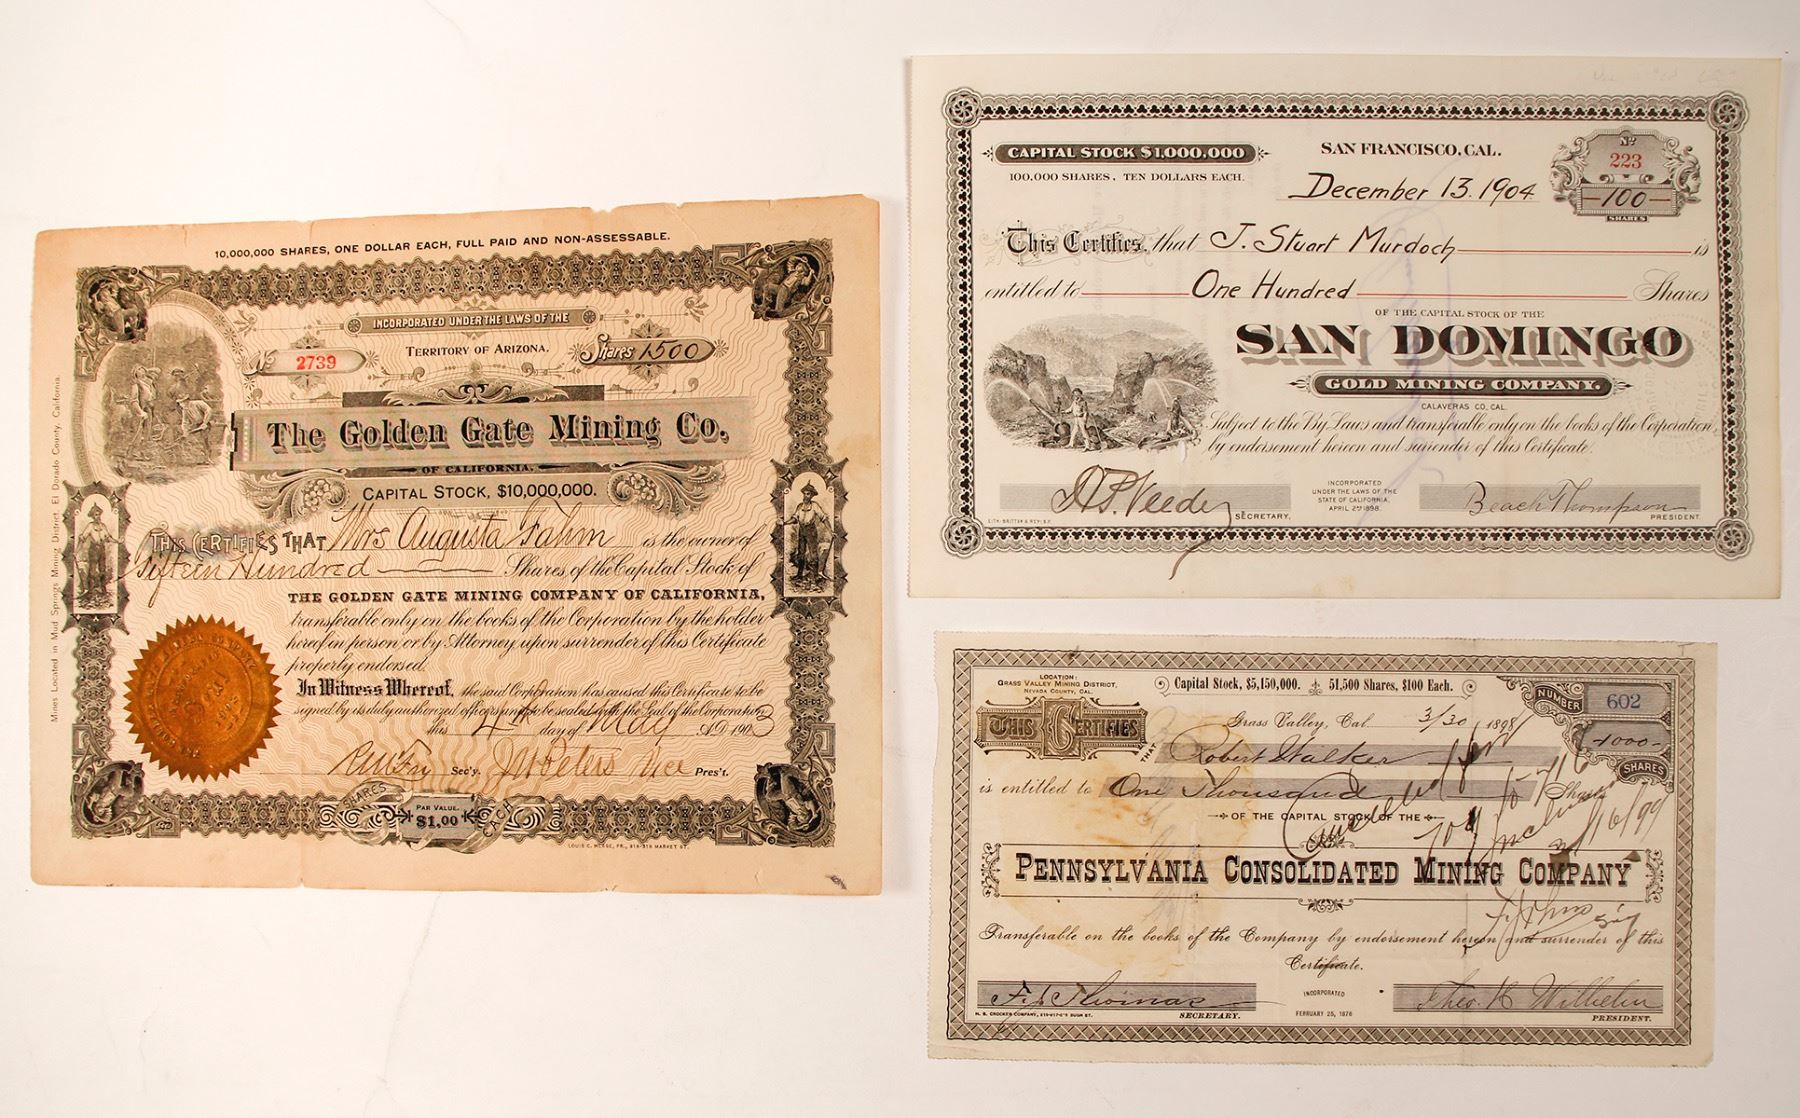 10,000,000 SHARES, ONE DOLLAR EACH, FULL PAID AND NON-ASSESSABLE.
INCORPORATED UNDER THE LAWS OF THE
TERRITORY OF ARIZONA.
No 2739
Shares 1500
The Golden Gate Mining Co.
OF CALIFORNIA.
CAPITAL STOCK, $10,000,000.
THIS CERTIFIES THAT Mrs Augusta Fahm is the owner of
Fifteen Hundred Shares, of the Capital Stock of
THE GOLDEN GATE MINING COMPANY OF CALIFORNIA,
transferable only on the books of the Corporation by the holder
hereof in person or by Attorney upon surrender of this Certificate
properly endorsed.
In Witness Whereof, the said Corporation has caused this Certificate to be
signed by its duly authorized officers and to be sealed with the Seal of the Corporation
this 4th day of May A.D. 1903
Sec'y. J M Peters Vice Pres't.
SHARES
PAR VALUE.
$1,00
EACH
LOUIS C. HESSE, PR., MARKET ST.
Mines Located in Mud Springs Mining District, El Dorado County, California.
CAPITAL STOCK $1,000,000
100,000 SHARES, TEN DOLLARS EACH.
SAN FRANCISCO, CAL.
December 13. 1904
No
223
100
SHARES
This Certifies, that J. Stuart Murdoch is
entitled to One Hundred Shares
OF THE CAPITAL STOCK OF THE
SAN DOMINGO
GOLD MINING COMPANY.
CALAVERAS CO, CAL.
Subject to the By Laws and transferable only on the books of the Corporation,
by endorsement hereon and surrender of this Certificate.
INCORPORATED
UNDER THE LAWS OF THE
STATE OF CALIFORNIA,
APRIL 2ND 1898.
Veeder
SECRETARY,
Beach Thompson
PRESIDENT.
LITH. BRITTON & REY. S.F.
LOCATION:
GRASS VALLEY MINING DISTRICT,
NEVADA COUNTY, CAL.
Capital Stock, $5,150,000. 51,500 Shares, $100 Each.
NUMBER 602
1000
SHARES
THIS CERTIFIES
Grass Valley, Cal. 3/30 1898
THAT Robert Walker
is entitled to One Thousand Shares
OF THE CAPITAL STOCK OF THE
Canceled
704
Inclu
2/16/99
PENNSYLVANIA CONSOLIDATED MINING COMPANY
Transferable on the books of the Company by endorsement hereon and surrender of this
Certificate.
F. J. Thomas
SECRETARY.
INCORPORATED
FEBRUARY 25, 1876
Theo. H Wilhelm
PRESIDENT.
H. S. CROCKER COMPANY, BUSH ST.